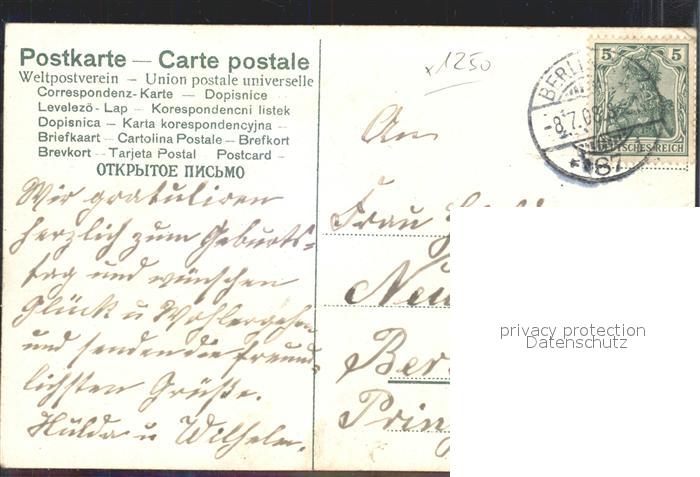 Postkarte — Carte postale
Weltpostverein — Union postale universelle
Correspondenz-Karte — Dopisnice
Levelezö-Lap — Korespondencni listek
Dopisnica — Karta korespondencyjna —
Briefkaart — Cartolina Postale — Brefkort
Brevkort — Tarjeta Postal Postcard —
ОТКРЫТОЕ ПИСЬМО
Wir gratulieren
herzlich zum Geburts=
tag und wünschen
Glück u Wohlergehen
und senden die freund=
lichsten Grüße.
Hulda u Wilhelm.
x1250
5 5
DEUTSCHES REICH
BERLIN
-8.7.08.8
*87
An
Frau
Neu
Ber
Prin
privacy protection
Datenschutz